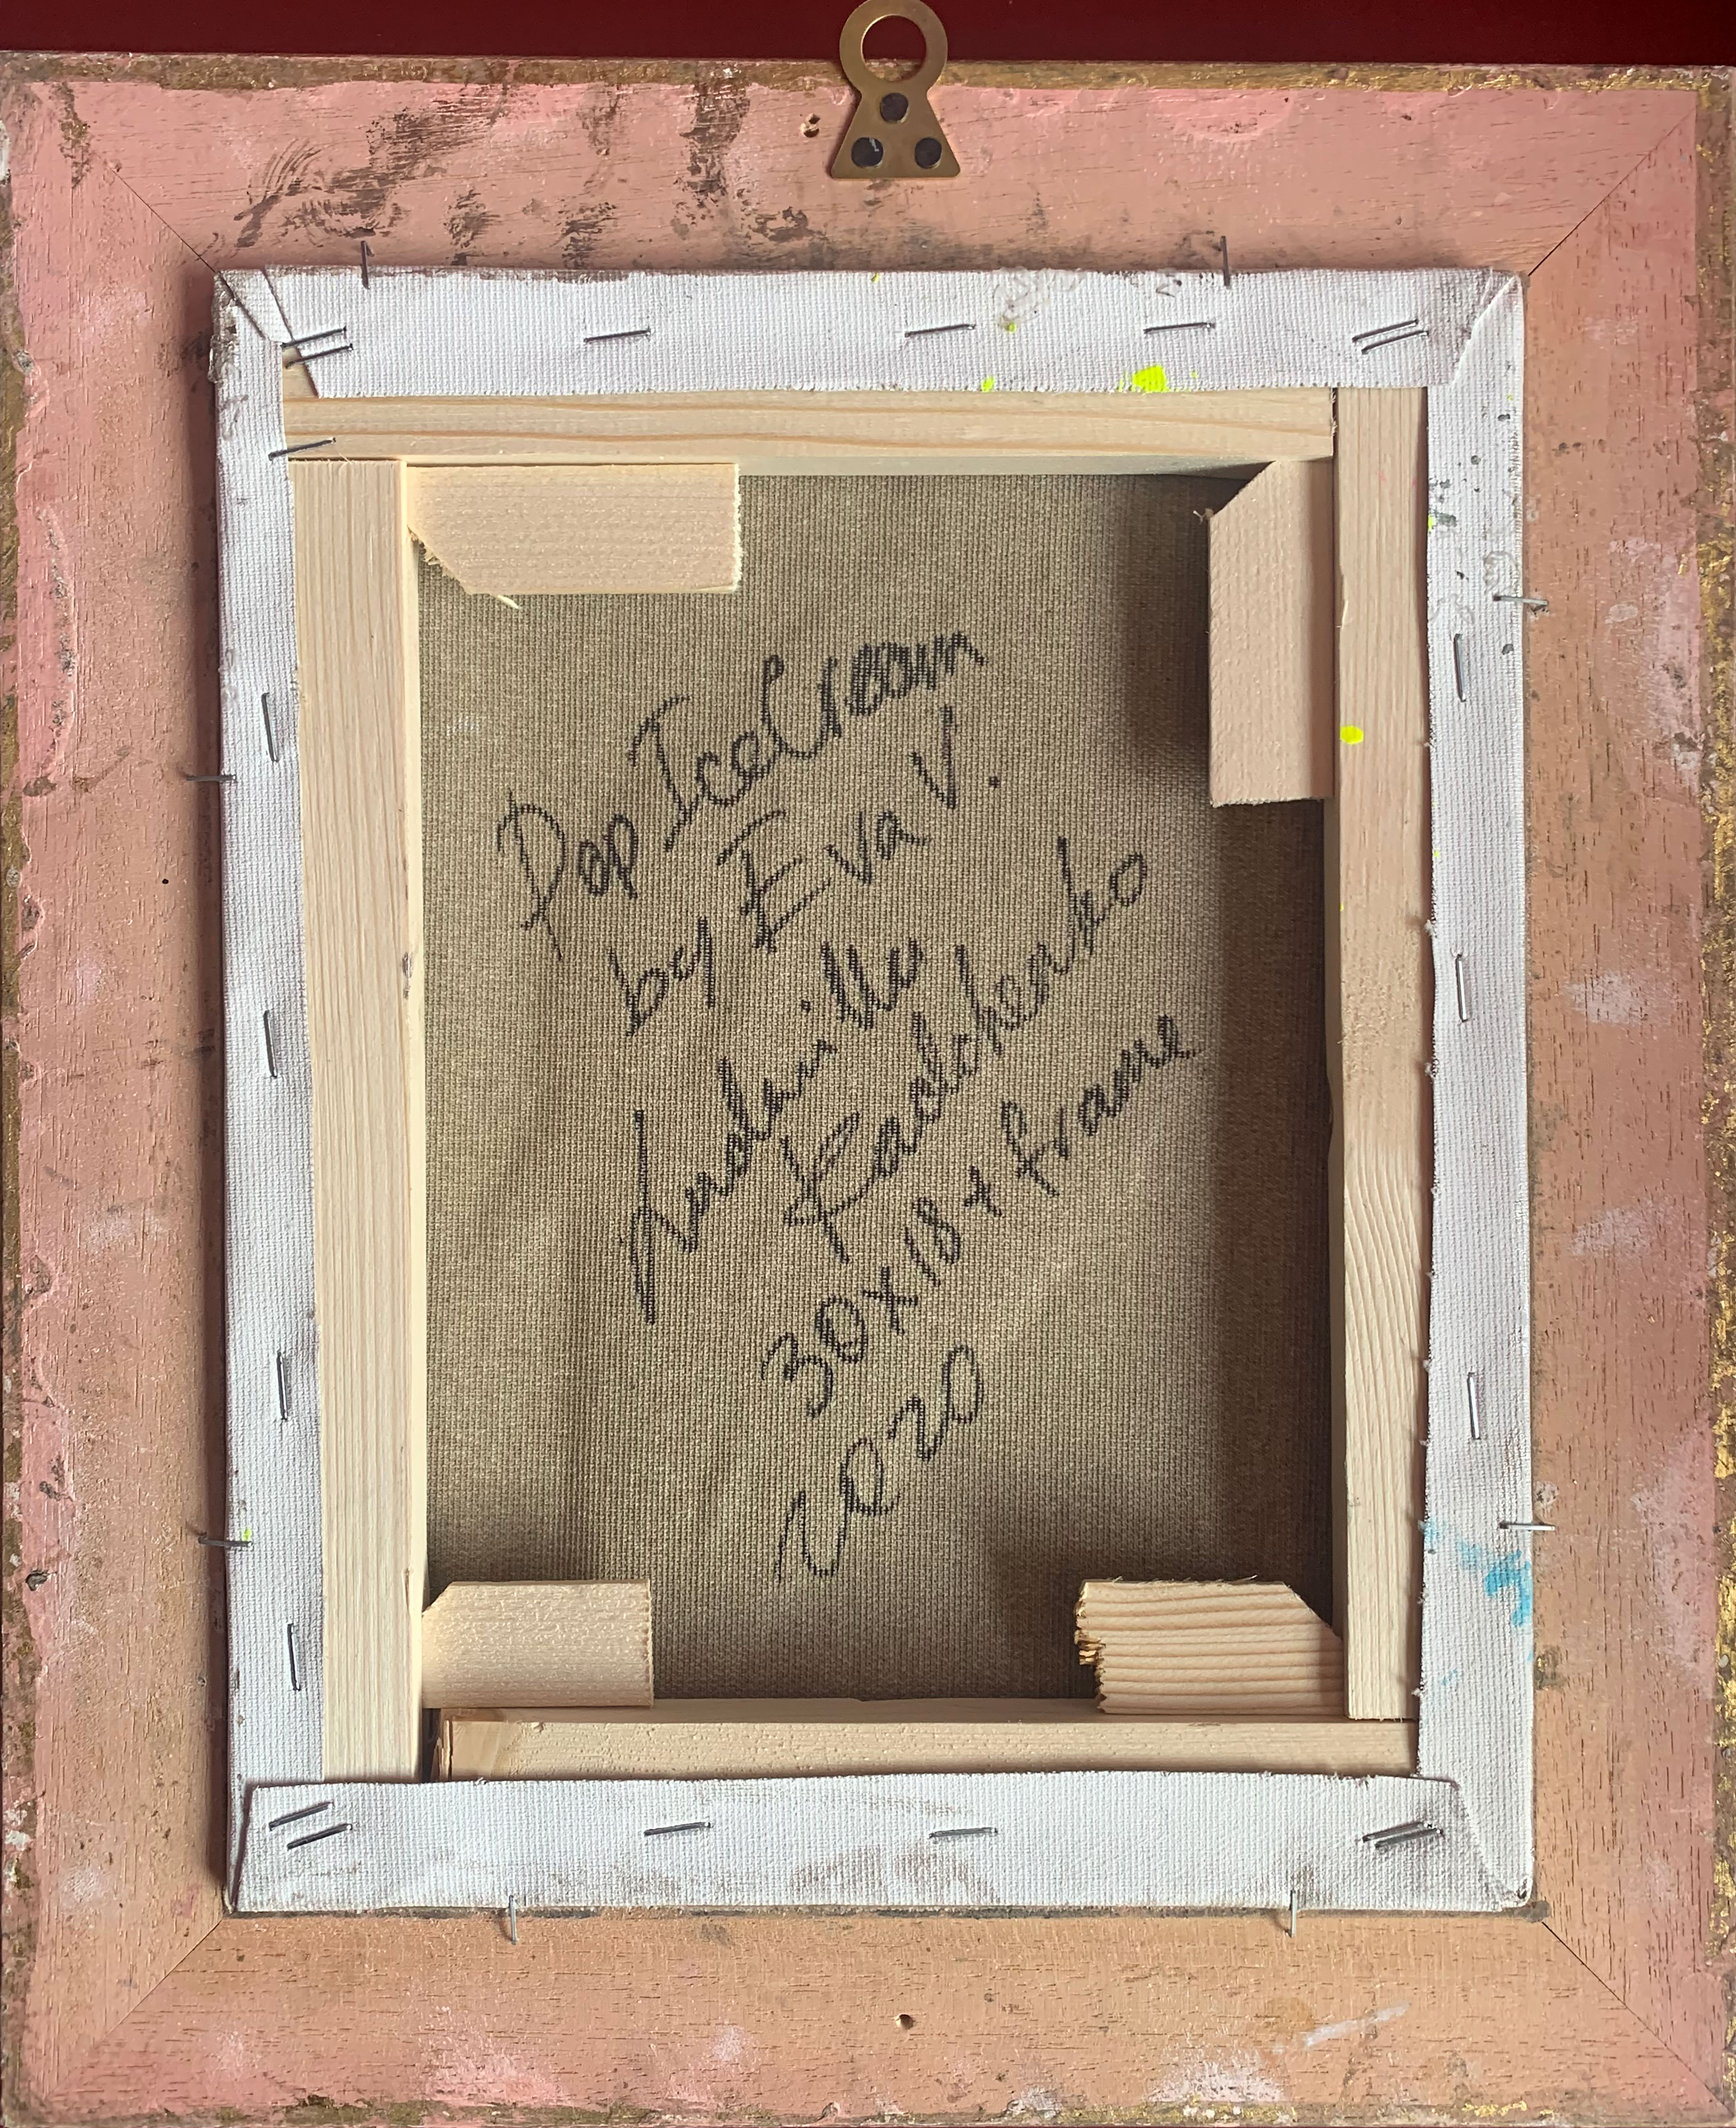 Pop IceCream
by Eva V.
Ludmilla
Radchenko
30x18 + frame
2020